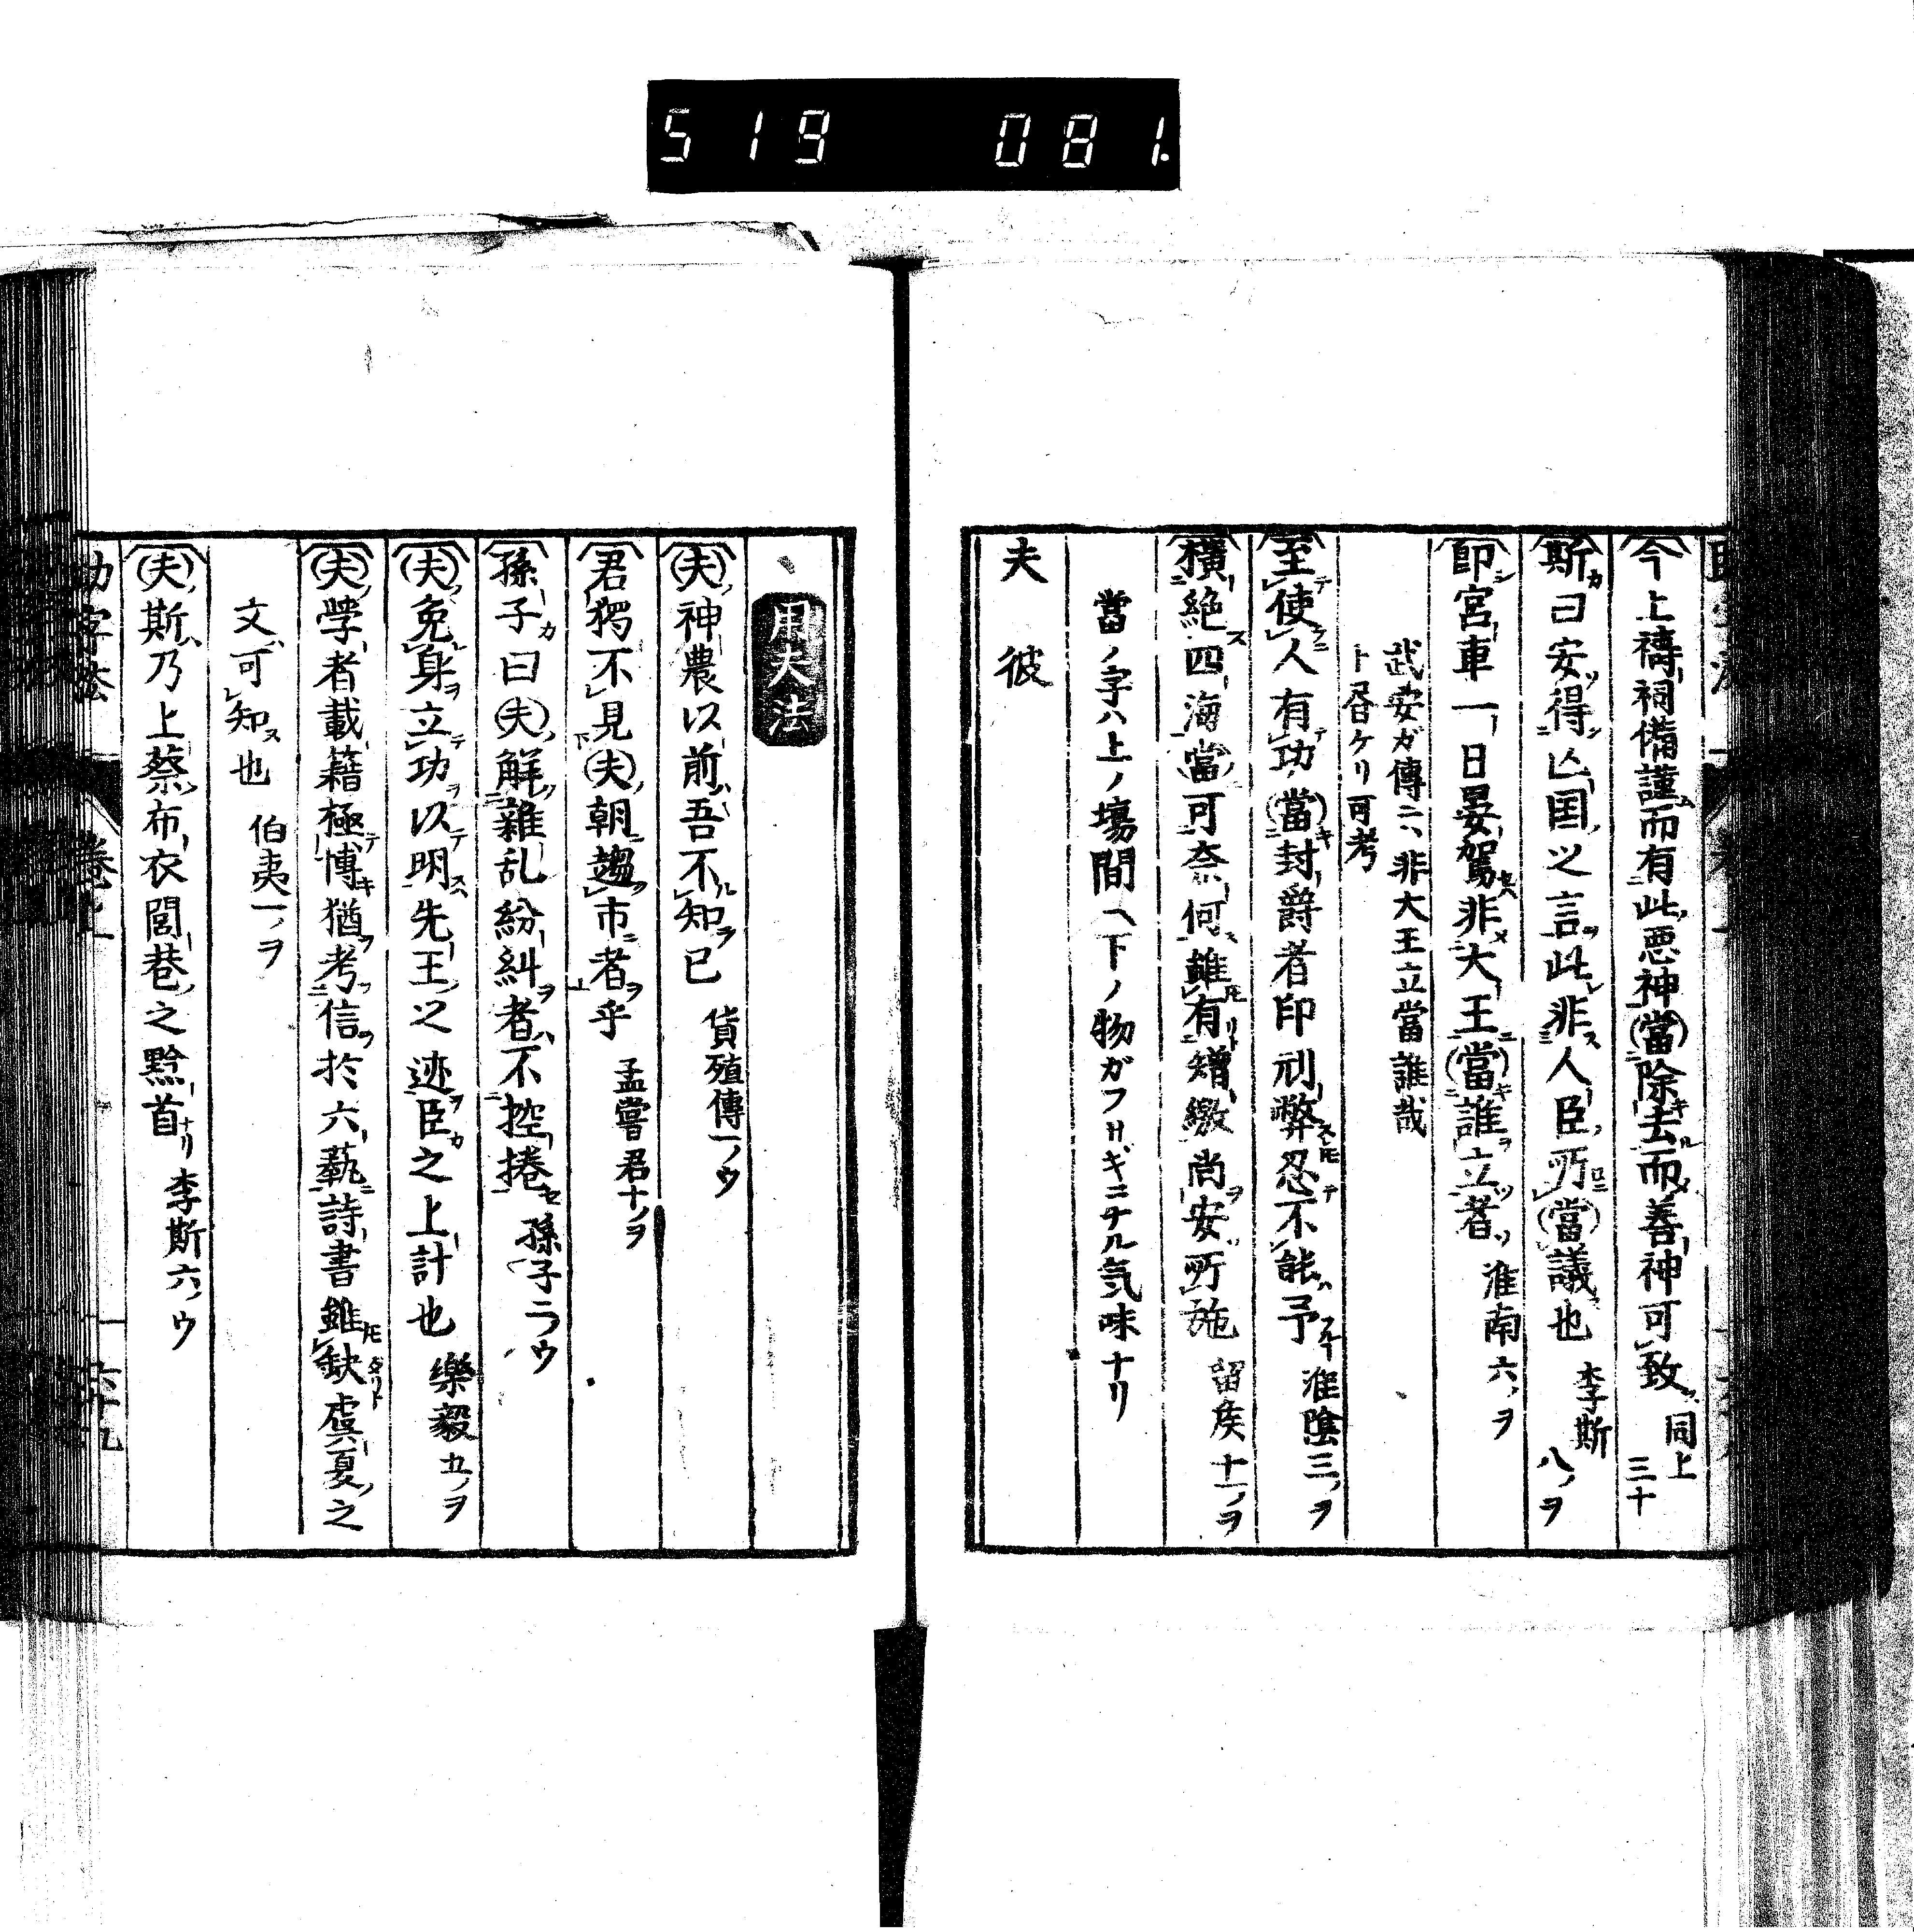 519 081.
今上禱祠備謹而有此悪神當除去而善神可致 同上三十
斯曰安得亡国之言此非人臣所當議也 李斯八ノヲ
即宮車一日晏駕非大王當誰立者 淮南六ノヲ
武安ガ傳ニハ非大王立當誰哉
ト昏ケリ可考
至使人有功當封爵者印刓弊忍不能予 淮陰三ノヲ
横絶四海當可奈何雖有矰繳尚安所施 留矦十一ノヲ
當ノ字ハ上ノ塲間ヘ下ノ物ガフサギニナル気味ナリ
夫 彼
用夫法
夫神農以前吾不知已 貨殖傳一ノウ
君獨不見夫朝趨市者乎 孟嘗君十ノヲ
孫子曰夫解雜乱紛糾者不控捲 孫子二ノウ
夫免身立功以明先王之迹臣之上計也 樂毅五ノヲ
夫學者載籍極博猶考信於六藝詩書雖缺虞夏之
文可知也 伯夷一ノヲ
夫斯乃上蔡布衣閭巷之黔首 李斯六ノウ
助字法 巻上 六十九